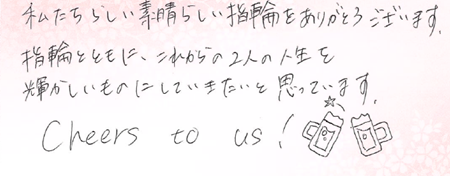 私たちらしい素晴らしい指輪をありがとうございます。
指輪とともに、これからの2人の人生を
輝かしいものにしていきたいと思っています。
Cheers to us!